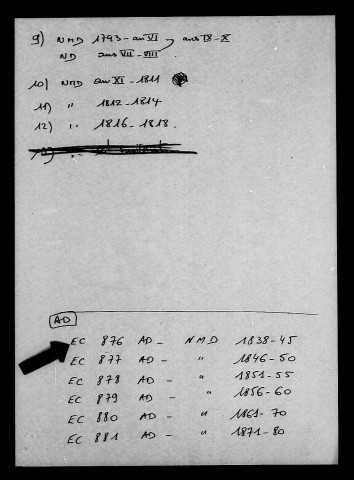 9) NMD 1793 - an VI - ans IX - X
ND ans VII - VIII
10) NMD an XI - 1811
11) " 1812 - 1814
12) " 1816 - 1818.
AD
EC 876 AD - NMD 1838-45
EC 877 AD - " 1846-50
EC 878 AD - " 1851-55
EC 879 AD - " 1856-60
EC 880 AD - " 1861-70
EC 881 AD - " 1871-80